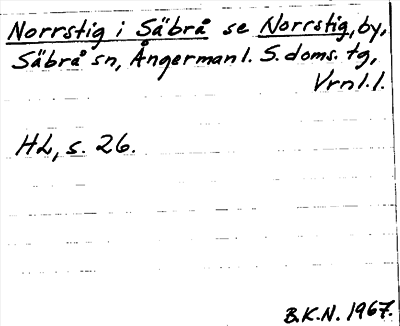 Norrstig i Säbrå se Norrstig, by,
Säbrå sn, Ångermanl. S. doms. tg,
Vrnl.l.
HL, s. 26.
B.K.N. 1967.